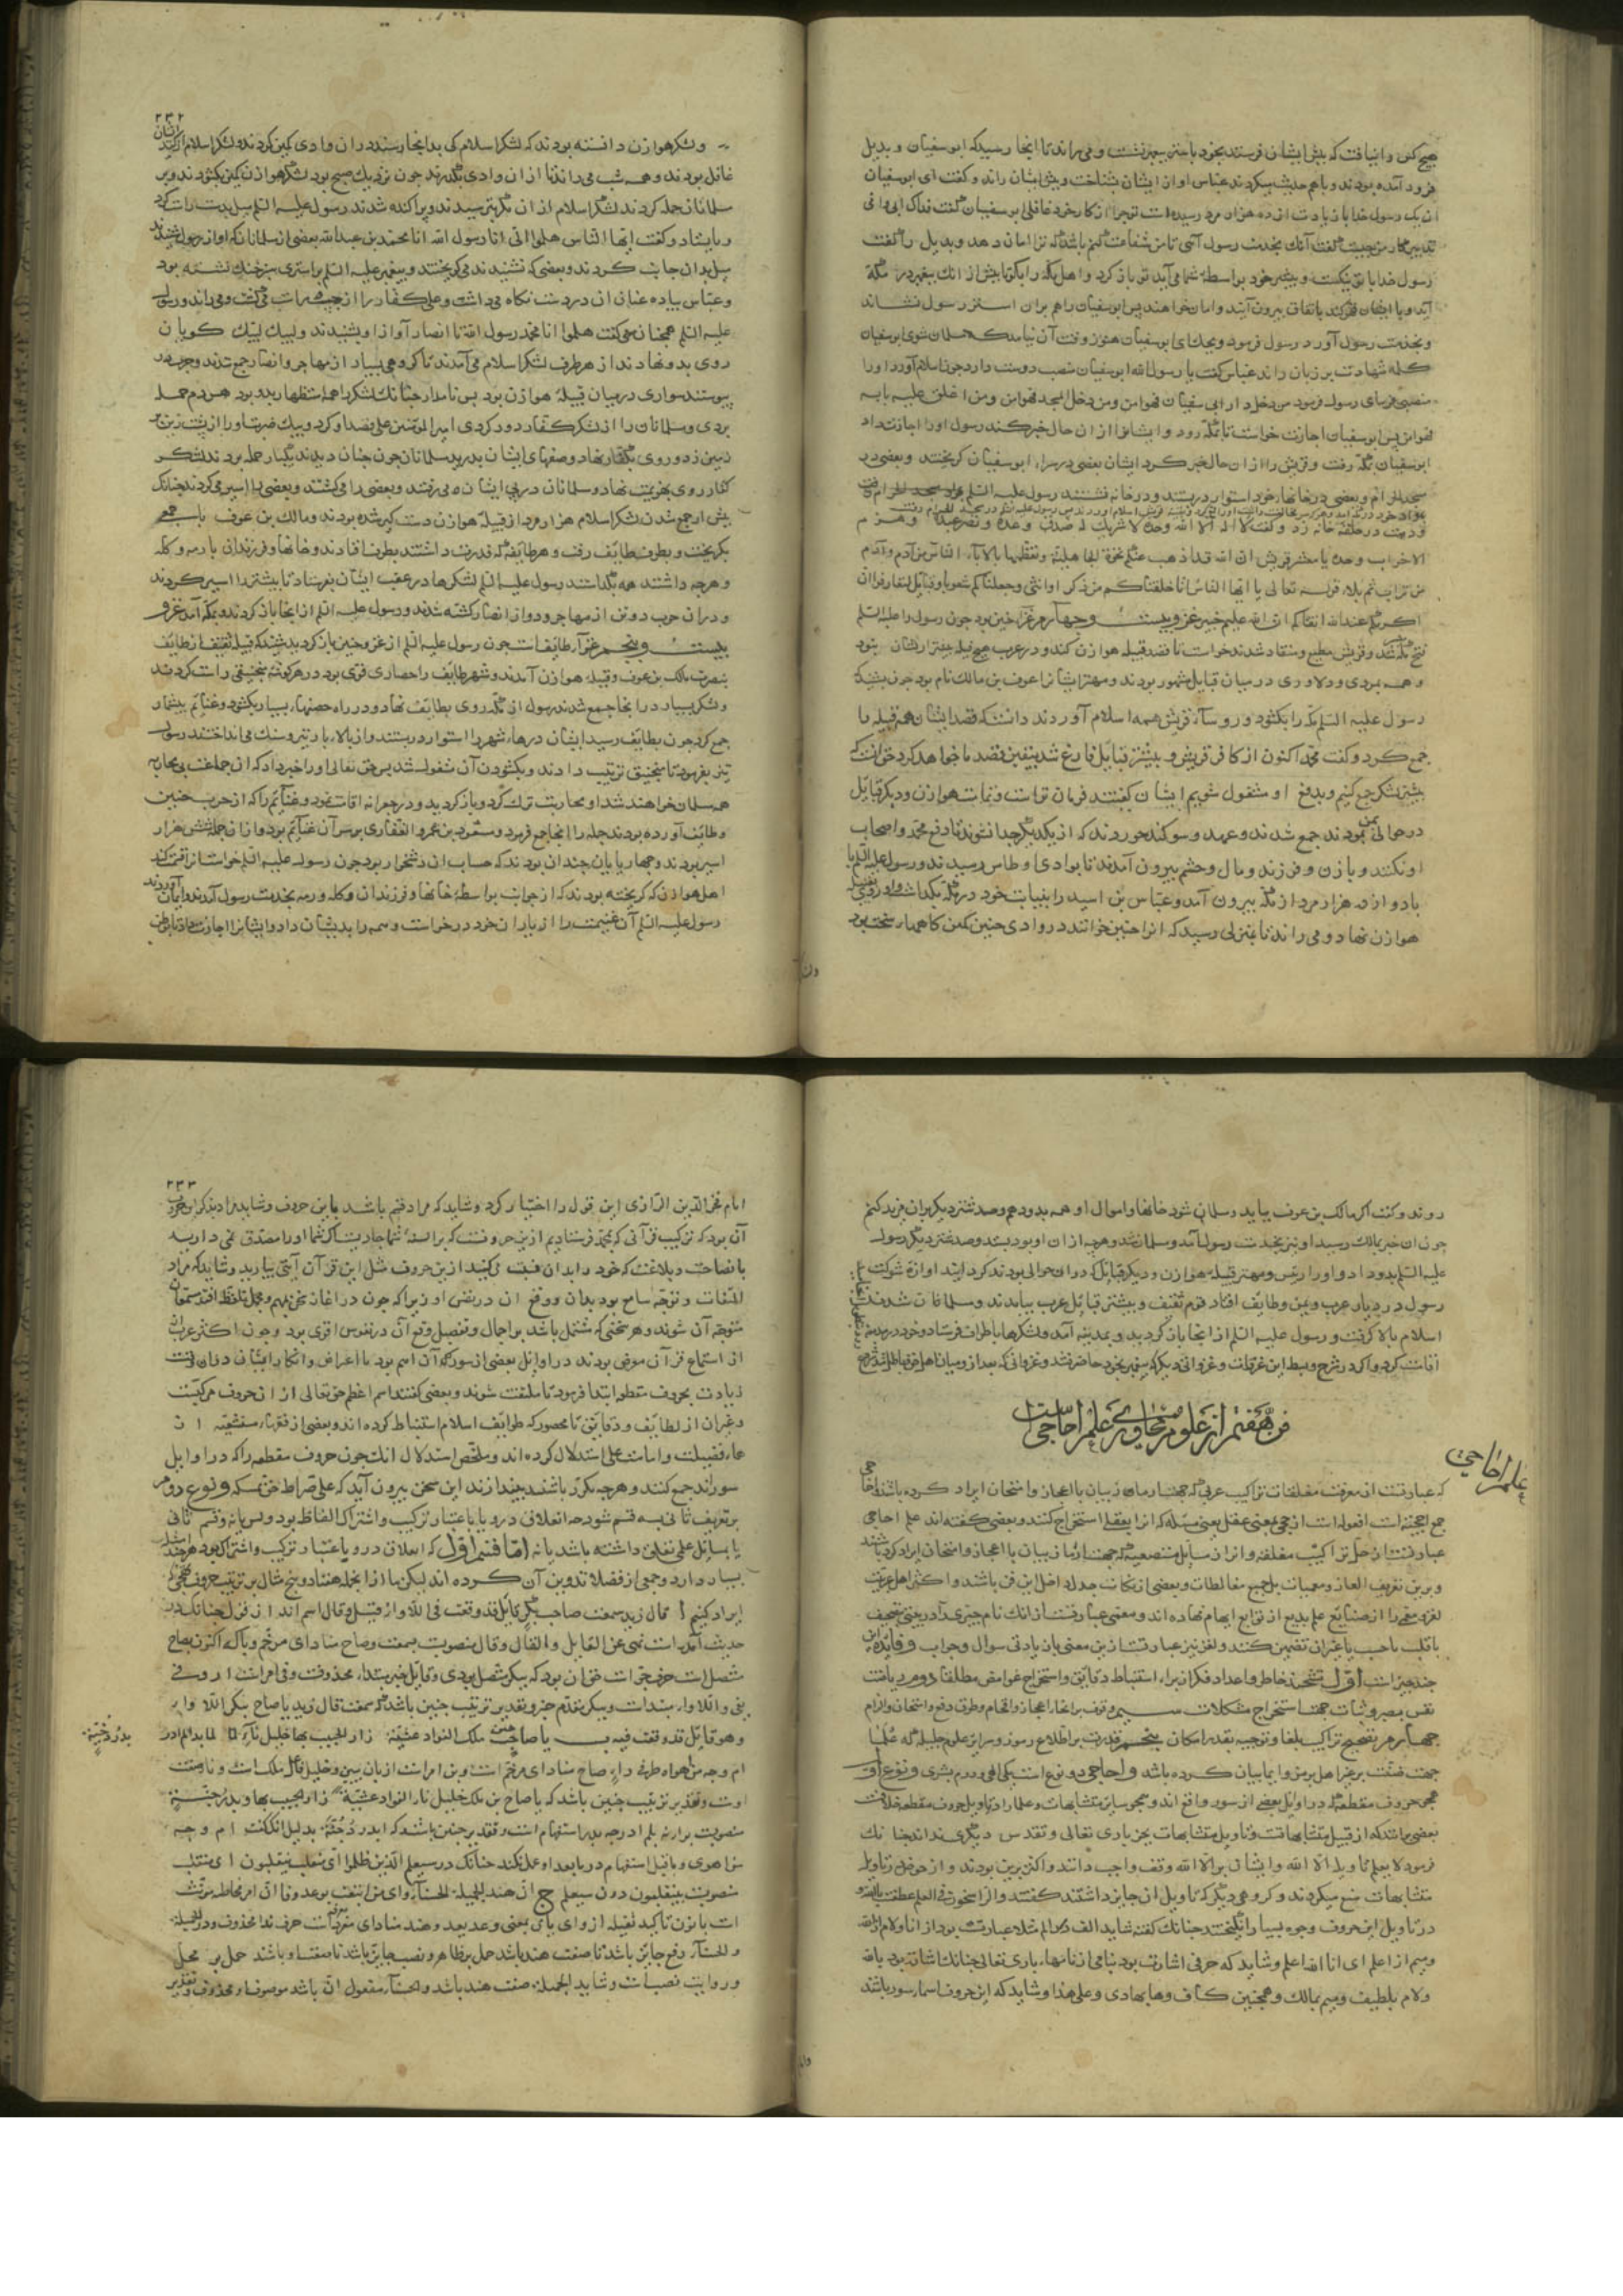 هیچ کس را نیافت که پیش ایشان فرستد بخود باستر پیغمبر نشست و می راند تا آنجا رسید که ابوسفیان و بدیل
فرود آمده بودند و باهم حدیث میکردند عباس آواز ایشان بشناخت و پیش ایشان راند و گفت ای ابوسفیان
اینک رسول خدا با زیادت از ده هزار مرد رسیده است تو چرا از کار خود غافلی ابوسفیان گفت فداک ابی و امی
تدبیر کار من چیست گفت آنک بخدمت رسول آئی تا من شفاعت کنم باشد که ترا امان دهد و بدیل را گفت
رسول خدا با تو نیکست و بیشتر خود بواسطه شما می آید تو باز گرد و اهل مکه را بگو تا پیش از آنک پیغمبر در مکه
آید و با ایشان قهر کند باتفاق بیرون آیند و امان خواهند پس ابوسفیان را هم بر آن استر رسول نشاند
و بخدمت رسول آورد رسول فرمود ویحک ای ابوسفیان هنوز وقت آن نیامد که مسلمان شوی ابوسفیان
کلمه شهادت بر زبان راند عباس گفت یا رسول الله ابوسفیان منصب دوست دارد چون اسلام آورد او را
منصبی فرمای رسول فرمود من دخل دار ابی سفیان فهو امن و من دخل المسجد فهو امن و من اغلق علیه بابه
فهو امن پس ابوسفیان اجازت خواست تا بمکه رود و ایشانرا از آن حال خبر کند رسول او را اجازت داد
ابوسفیان بمکه رفت و قریش را از آن حال خبر کرد ایشان بعضی در سرای ابوسفیان گریختند و بعضی در
مسجد الحرام و بعضی در خانهاء خود استوار در بستند و در خانه نشستند رسول علیه السلم بمسجد الحرام رفت
و دست در حلقه خانه زد و گفت لا اله الا الله وحده لا شریک له صدق وعده و نصر عبده و هزم
الاحزاب وحده یا معشر قریش ان الله قد اذهب عنکم نخوة الجاهلیة و تعظمها بالاباء الناس من آدم و آدم
من تراب ثم تلا قوله تعالی یا ایها الناس انا خلقناکم من ذکر او انثی و جعلناکم شعوبا و قبایل لتعارفوا ان
اکرمکم عند الله اتقاکم ان الله علیم خبیر غزو بیست و چهارم غزاء حنین بود چون رسول را علیه السلم
فتح مکه شد و قریش مطیع و منقاد شدند خواست تا قصد قبیله هوازن کند و در عرب هیچ قبیله بیشتر از ایشان نبود
و همه بمردی و دلاوری در میان قبایل مشهور بودند و مهتر ایشانرا عوف بن مالک نام بود چون بشنید که
رسول علیه السلم مکه را بکشود و روساء قریش همه اسلام آوردند دانست که قصد ایشان هم قبیله را
جمع کرد و گفت محمد اکنون از کافر قریش و بیشتر قبایل فارغ شد بیقین قصد ما خواهد کرد خوانست که
پیشتر لشکر جمع کنیم و بدفع او مشغول شویم ایشان گفتند فرمان تراست و تمامت هوازن و دیگر قبایل
در حوالی یمن بودند جمع شدند و عهد و سوگند خوردند که از یکدیگر جدا نشوند تا دفع محمد و اصحاب
او نکنند و با زن و فرزند و مال و حشم بیرون آمدند تا بوادی اوطاس رسیدند و رسول علیه السلم
با دوازده هزار مرد از مکه بیرون آمد و عباس بن اسید را بنیابت خود در مکه بگذاشت و او روی بقبیله
هوازن نهاد و می راند تا بمنزلی رسید که آنرا حنین خوانند در وادی حنین کمین گاهها سخت بود
٢٣٢
و لشکر هوازن دانسته بودند که لشکر اسلام کی بدانجا رسند در آن وادی کمین کردند و لشکر اسلام از ایشان
غافل بودند و همه شب می راندند تا از آن وادی بگذرند چون نزدیک صبح بود لشکر هوازن کمین بکشودند و بر
مسلمانان حمله کردند لشکر اسلام از آن بترسیدند و پراکنده شدند رسول علیه السلم میل بدست راست کرد
و بایستاد و گفت ایها الناس هلموا الی انا رسول الله انا محمد بن عبدالله بعضی از مسلمانان که آواز رسول شنیدند
میل بدان جانب کردند و بعضی که نشنیدند می گریختند و پیغمبر علیه السلم بر استری سرخنک نشسته بود
و عباس پیاده عنان آن در دست نگاه میداشت و علی کفار را از چپ و راست می کشت و می راند و رسول
علیه السلم همچنان می گفت هلموا انا محمد رسول الله تا انصار آواز او بشنیدند و لبیک لبیک گویان
روی بدو نهادند از هر طرف لشکر اسلام می آمدند تا گروهی بسیار از مهاجر و انصار جمع شدند و حرب در
پیوستند سواری در میان قبیله هوازن بود بس نامدار چنانک لشکر را همه استظهار بدو بود هر دم حمله
بردی و مسلمانان را از لشکر کفار دور کردی امیر المؤمنین علی قصد او کرد و بیک ضربت او را از پشت زین بر
زمین زد و روی بکفار نهاد و صفهای ایشان بدرید مسلمانان چون چنان دیدند بیکبار حمله بردند لشکر
کفار روی بهزیمت نهاد و مسلمانان در پی ایشان می رفتند و بعضی را می کشتند و بعضی را اسیر می کردند چنانک
پیش از جمع شدن لشکر اسلام هزار مرد از قبیله هوازن دستگیر شده بودند و مالک بن عوف با جمعی
بگریخت و بطرف طایف رفت و هر طایفه که قدرت داشتند بطرفی افتادند و خانها و فرزندان با رمه و کله
و هرچه داشتند همه بگذاشتند رسول علیه السلم لشکرها در عقب ایشان بفرستاد تا بیشتر را اسیر کردند
و در آن حرب دو تن از مهاجر و دو از انصار کشته شدند و رسول علیه السلم از آنجا باز گردید و بمکه آمد غزو
بیست و پنجم غزاء طایف است چون رسول علیه السلم از غزو حنین باز گردید بشنید که قبیله ثقیف از طایف
بنصرت مالک بن عوف و قبیله هوازن آمدند و شهر طایف را حصاری قوی بود در هر گوشه منجنیقی راست کردند
و لشکر بسیار در آنجا جمع شدند رسول از مکه روی بطایف نهاد و در راه حصنهاء بسیار بکشود و غنایم بیشمار
جمع کرد چون بطایف رسید ایشان درهاء شهر را استوار در بستند و از بالاء باره تیر و سنگ می انداختند رسول
نیز بفرمود تا منجنیق ترتیب دادند و بکشودن آن مشغول شد پس حق تعالی او را خبر داد که آن جماعت بی محاربه
همه مسلمان خواهند شد او محاربت ترک کرد و باز گردید و در جعرانه اقامت نمود و غنایم را که از حرب حنین
و طایف آورده بودند جمله را آنجا جمع فرمود و مسعود بن عمرو الغفاری بر سر آن غنایم بود و از آن جمله شش هزار
اسیر بودند و چهار پایان چندان بودند که حساب آن دشخوار بود چون رسول علیه السلم خواست تا قسمت کند
اهل هوازن که گریخته بودند که از جوانب بواسطه خانها و فرزندان و کله و رمه بخدمت رسول آمدند و ایمان آوردند
رسول علیه السلم آن غنیمت را از یاران خود درخواست و همه را بدیشان داد و ایشانرا اجازت داد تا با وطن
روند و گفت اگر مالک بن عوف بیاید و مسلمان شود خانها و اموال او همه بدو دهم و صد شتر دیگر بر آن مزید کنم
چون آن خبر بمالک رسید او نیز بخدمت رسول آمد و مسلمان شد و هرچه از آن او بود بستد و صد شتر دیگر رسول
علیه السلم بدو داد و او را رئیس و مهتر قبیله هوازن و دیگر قبایل که در آن حوالی بودند گردانید آوازه شوکت
رسول در دیار عرب و یمن و طایف افتاد قوم ثقیف و بیشتر قبایل عرب بیامدند و مسلمان شدند
اسلام بالا گرفت و رسول علیه السلم از آنجا باز گردید و بمدینه آمد و لشکرها باطراف فرستاد و خود در مدینه
اقامت کرد و اگر در شرح و بسط این غزوات و غزواتی دیگر که پیغمبر بخود حاضر نشد
فن هفتم از علوم محاوری علم احاجی است
علم احاجی
که عبارتست از معرفت مغلقات تراکیب عربی که جهت آزمایش زبان یا اعجاز و امتحان ایراد کرده باشند احاجی
جمع احجیه است افعوله است از حجی بمعنی عقل یعنی مسئله که آنرا بعقل استخراج کنند و بعضی گفته اند علم احاجی
عبارتست از حل تراکیب مغلقه و آنرا از مسایل متصعبه که جهت آزمایش زبان یا اعجاز و امتحان ایراد کرده باشند
و برین تعریف الغاز و معمیات بل جمیع مغالطات و بعضی از نکات جدل داخل این فن باشند و اکثر اهل عربیت
لغز و معمی را از صنایع علم بدیع از توابع ایهام نهاده اند و معمی عبارتست از آنک نام چیزی آورند بتصحیف
یا قلب یا حساب یا غیر آن تضمین کنند و لغز نیز عبارتست ازین معنی با زیادتی سوال و جواب و فایده این
چند چیز است اول تشحیذ خاطر و اعداد فکر از برای استنباط دقایق و استخراج غوامض مطلقا دوم دریافت
نفس بصیر و ثبات جهت استخراج مشکلات سیم وقوف بر انحاء اعجاز و افحام و طرق دفع و امتحان و الزام
چهارم تصحیح تراکیب بلغا و توجیه بقدر امکان پنجم قدرت بر اطلاع رموز و سرایر علوم جلیله که علما
جهت ضنت بر غیر اهل برمز و ایما بیان کرده باشد و احاجی دو نوع است یکی الهی و دوم بشری و نوع اول
همچو حروف مقطعه که در اوایل بعضی از سور واقع اند و همچو سایر متشابهات و علما را در تاویل حروف مقطعه خلافست
بعضی برانند که از قبیل متشابهاتست و تاویل متشابهات بجز باری تعالی و تقدس دیگری نداند چنانک
فرمود لا یعلم تاویله الا الله و ایشان بر الا الله وقف واجب دانند و اکثر برین بودند و از خوض در تاویل
متشابهات منع میکردند و گروهی دیگر که تاویل آن جایز داشتند گفتند و الراسخون فی العلم عطفست بر الله و
در تاویل این حروف وجوه بسیار انگیختند چنانک گفتند شاید الف در الم مثلا عبارت بود از انا و لام از الله
و میم از اعلم ای انا الله اعلم و شاید که هر حرفی اشارت بود بنامی از نامهاء باری تعالی چنانک اشارت بود بالله
و لام بلطیف و میم بمالک و همچنین کاف و ها بهادی و علی هذا و شاید که این حروف اسماء سور باشند
٢٣٣
امام فخر الدین الرازی این قول را اختیار کرد و شاید که مراد قسم باشد باین حروف و شاید مراد بذکر این حروف
آن بود که ترکیب قرآنی که بمحمد فرستادیم ازین حروفست که بر السنه شما جاریست اگر شما او را مصدق نمی دارید
با فصاحت و بلاغت که خود را بدان نسبت می کنید ازین حروف مثل این قرآن آیتی بیارید و شاید که مراد
التفات و توجه سامع بود بدان و وقع آن در نفس او زیرا که چون در آغاز سخن مبهم و مجمل تلفظ افتد مستمعان
متوجه آن شوند و هر سخنی که مشتمل باشد بر اجمال و تفصیل وقع آن در نفوس اقوی بود و چون اکثر عرب
از استماع قرآن معرض بودند در اوایل بعضی از سور که آن اسم بود با اعراض و انکار ایشان در آن وقت
زیادت بحروف مقطعه ابتدا فرمود تا ملتفت شوند و بعضی گفتند اسم اعظم حق تعالی از آن حروف مرکبست
و غیر آن از لطایف و دقایق نامحصور که طوایف اسلام استنباط کرده اند و بعضی از فقهاء متشیعه از آن
هاء فضیلت و امامت علی استدلال کرده اند و ملخص استدلال آنک چون حروف مقطعه را که در اوایل
سورند جمع کنند و هرچه مکرر باشند بیندازند این سخن بیرون آید که علی صراط حق نمسکه و نوع دوم
بر تعریف ثانی به قسم شود چه اغلاق درو یا باعتبار ترکیب و اشتراک الفاظ بود و بس یا نه و قسم ثانی
یا بمسائل علمی تعلق داشته باشد یا نه اما قسم اول که اغلاق درو باعتبار ترکیب و اشتراک بود هرچند
بسیار دارد و جمعی از فضلا تدوین آن کرده اند لیکن ما از آنجمله هشتاد و پنج مثال بر ترتیب حروف تهجی
ایراد کنیم ا قال زید سمعت صاحب بکر قایل قد وقعت فی اللأواء قیل و قال اسم اند از قول چنانک در
حدیث آمد است نهی عن القایل و القال و قال منصوبست بسمعت و صاح منادای مرخم و باک اکنون صاح
متصل است حرف جر است
بفی و اللاواء مبتداست و بکر متقدم خبر و تقدیر ترتیب چنین باشد که سمعت قال زید یا صاح ببکر اللاواء
و هو قایل قد وقعت فیه ب یا صاح بن ملک الفواد عشیة زار الحبیب بها خلیل ناء
بدرٌ دُجیّةٍ
ام وجه من اهواه طرفی راء صاح منادای مرخم است و بن امر است از بان یبین و خلیل فاعل ملک است و نار صفت
اوست و تقدیر ترتیب چنین باشد که یا صاح بن ملک خلیل نار الفواد عشیة زار الحبیب بها و بدر دجیة
سواه وی و ما قبل استفهام در ما بعد او عمل نکند چنانک در سیعلم الذین ظلموا ای منقلب ینقلبون ای منقلب
منصوبست بینقلبون دون سیعلم ج ان هند الجمیلة الحسناء وای من اتبعت بوعد وفا ان امر مخاطب مونث
است با نون تاکید ثقیله از وای یای بمعنی وعد یعد و هند منادای مفرد است حرف ندا محذوف و در الجمیلة
و الحسناء رفع جایز باشد تا صفت هند باشد حمل بر ظاهر و نصب جایز باشد تا صفت او باشد حمل بر محل
و روایت نصب است و شاید الجمیلة صفت هند باشد و الحسناء مفعول ان باشد موصوف او محذوف و تقدیر